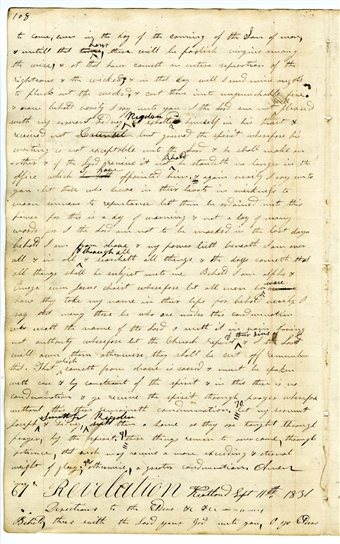 108
to come, even in the day of the coming of the Son of man
& untill that hour there will be foolish virgins among
the wise, & at that hour cometh an entire seperation of the
righteous & the wicked & in that day will I send mine angels
to pluck out the wicked & cast them into unquenchable fire
& now behold verily I say unto you I the Lord am not pleased
with my servent Sidney Rigdon he exalted himself in his heart &
received not Councel but grieved the spirit wherefore his
writing is not exceptable unto the Lord & he shall make an
other & if the Lord receive it not Behold he standeth no longer in the
office which I have appointed him & again verily I say unto
you let those who desire in their heart in meekness to
warn sinners to repentance let them be ordained unto this
power for this is a day of warning & not a day of many
words for I the Lord am not to be mocked in the last days
behold I am from above & my power lieth beneath I am over
all & in all & through all & searcheth all things & the day cometh that
all things shall be subject unto me Behold I am alpha &
Omega even Jesus christ wherefore let all men beware
how they take my name in their lips for behold verily I
say that many there be who are under this condemnation
who useth the name of the Lord & useth it in vain having
not authority wherefore let the Church repent of their sins & I the Lord
will own them otherwise they shall be cut off remember
that that which cometh from above is sacred & must be spoken
with care & by constraint of the spirit & in this there is no
condemnation & ye receive the spirit through prayer wherefore
without this there remaineth condemnation let my servent
Joseph Smith Jr & Sidney Rigdon seek them a home as they are taught through
prayer by the spirit these things remain to overcome through
patience, that such may receive a more exceeding & eternal
weight of glory otherwise, a greater condemnation Amen
67th Revelation Kirtland Sept 11th 1831
Directions to the Elders &c &c
Behold, thus saith the Lord your God unto you, O ye Elders